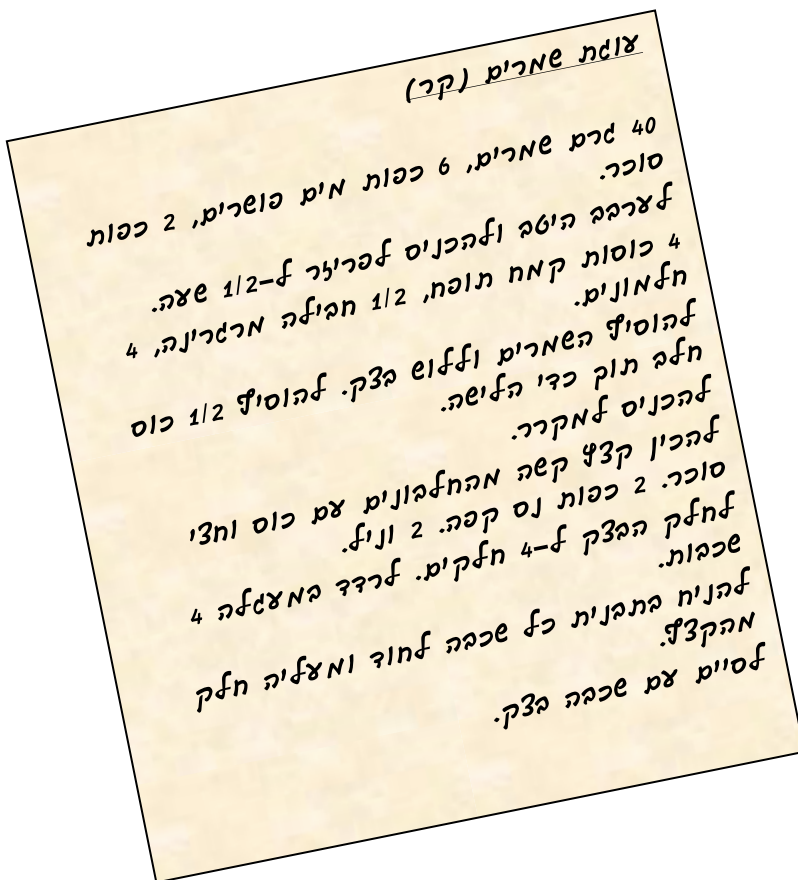 עוגת שמרים (קר)
40 גרם שמרים, 6 כפות מים פושרים, 2 כפות
סוכר.
לערבב היטב ולהכניס לפריזר ל-1/2 שעה.
4 כוסות קמח תופח, 1/2 חבילה מרגרינה, 4
חלמונים.
להוסיף השמרים וללוש בצק. להוסיף 1/2 כוס
חלב תוך כדי הלישה.
להכניס למקרר.
להכין קצף קשה מהחלבונים עם כוס וחצי
סוכר. 2 כפות נס קפה. 2 וניל.
לחלק הבצק ל-4 חלקים. לרדד במעגלה 4
שכבות.
להניח בתבנית כל שכבה לחוד ומעליה חלק
מהקצף.
לסיים עם שכבה בצק.